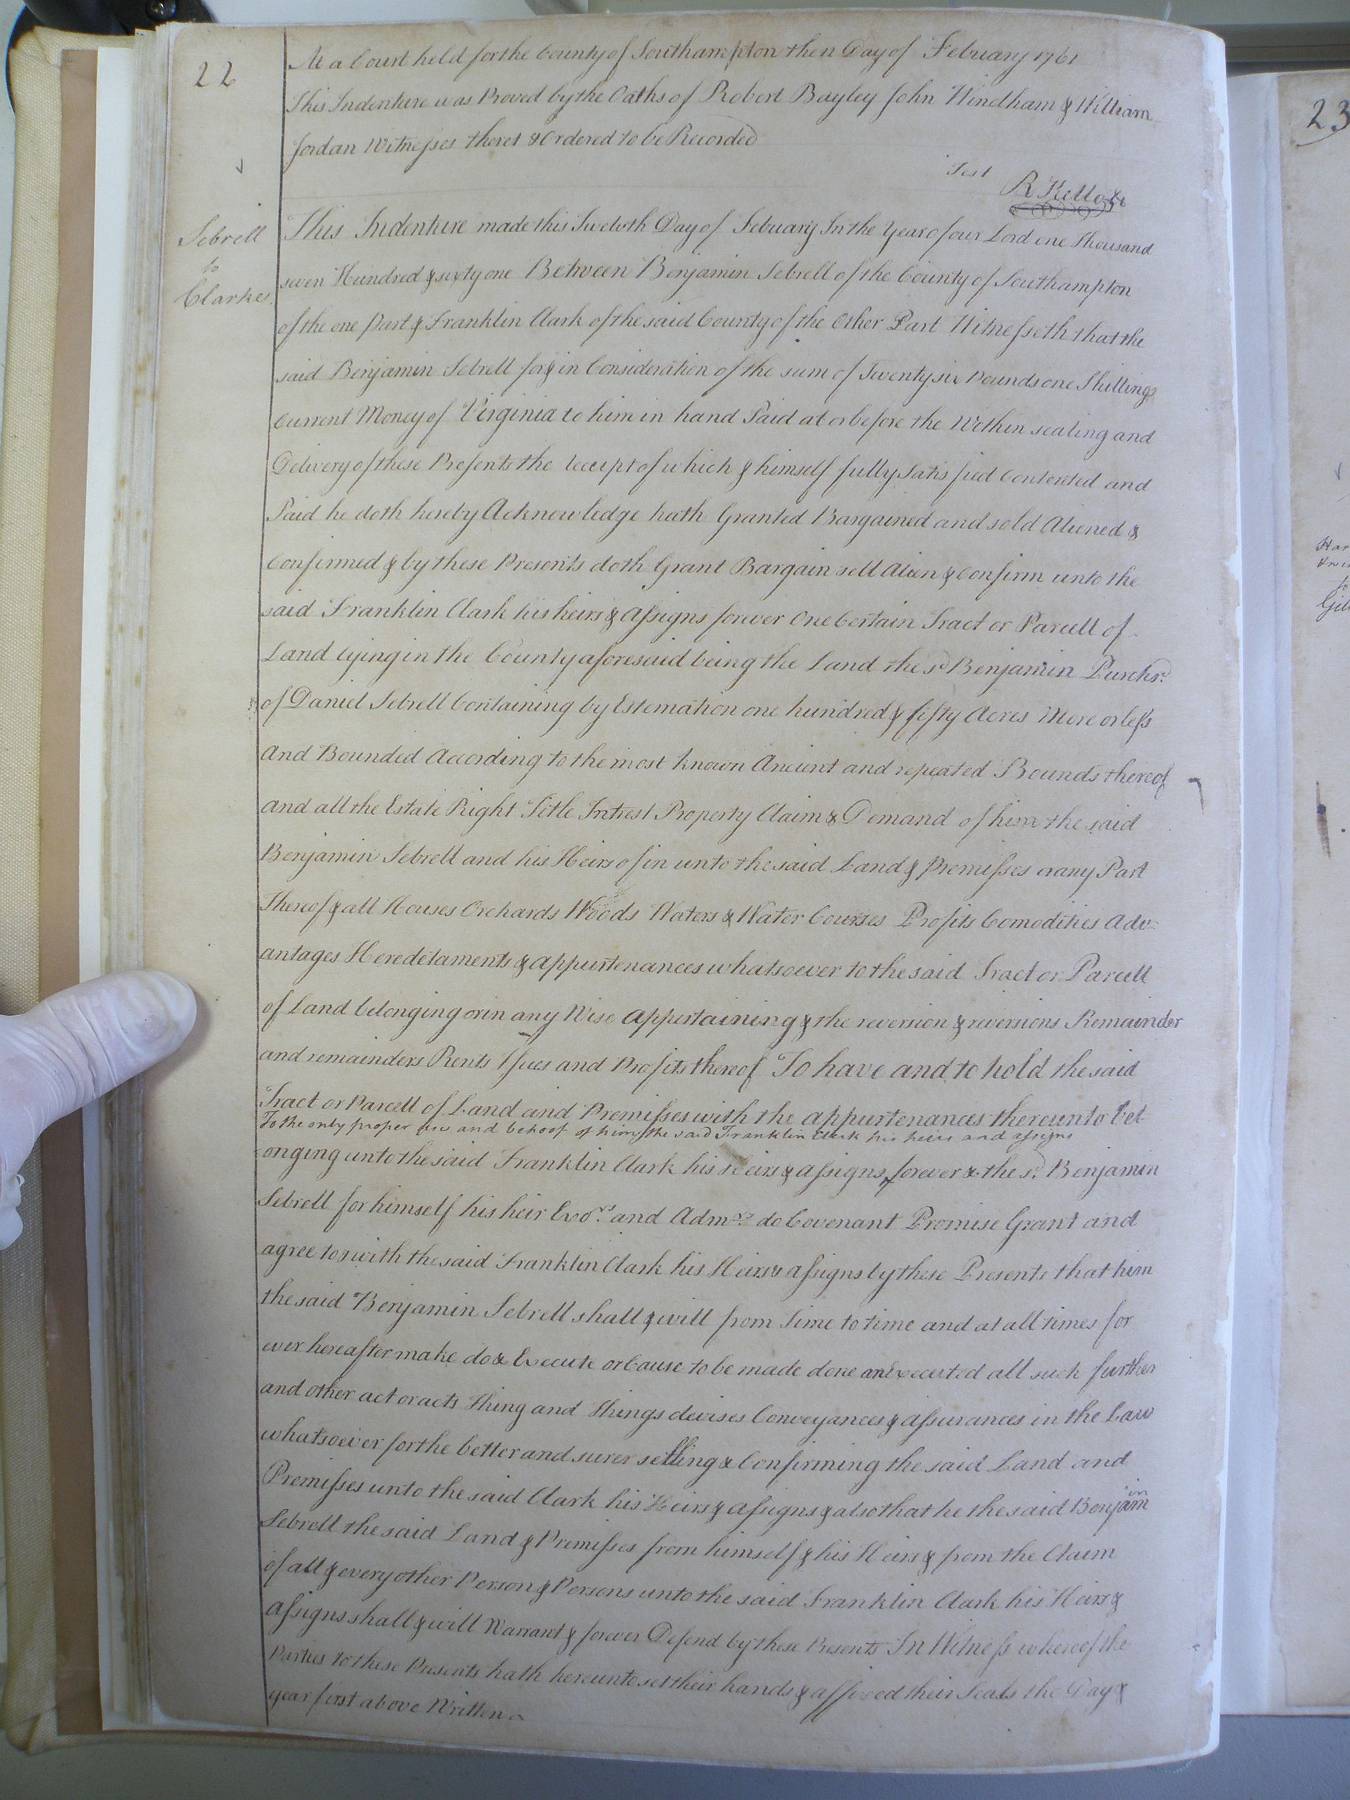 22
At a Court held for the County of Southampton the 12 Day of February 1761
This Indenture was Proved by the Oaths of Robert Bayley John Windham & William
Jordan Witnesses thereto & Ordered to be Recorded
Test
R Kello
Sebrell
to
Clarke
This Indenture made this Twelvth Day of Febuary In the Year of our Lord one Thousand
seven Hundred & sixty one Between Benjamin Sebrell of the County of Southampton
of the one Part & Franklin Clark of the said County of the Other Part Witnesseth that the
said Benjamin Sebrell for & in Consideration of the sum of Twenty six Pounds one Shillings
Current Money of Virginia to him in hand Paid at or before the Within sealing and
Delivery of these Presents the receipt of which & himself fully satisfied Contented and
Paid he doth hereby Acknowledge hath Granted Bargained and sold Aliened &
Confirmed & by these Presents doth Grant Bargain sell Alien & Confirm unto the
said Franklin Clark his heirs & Assigns forever One Certain Tract or Parcell of
Land lying in the County aforesaid being the Land the sd Benjamin Purchsd
of Daniel Sebrell Containing by Estemation one hundred & fifty Acres More or less
And Bounded According to the most known Ancient and repeated Bounds thereof
and all the Estate Right Title Intrest Property Claim & Demand of him the said
Benjamin Sebrell and his Heirs of in unto the said Land & Premisses or any Part
Thereof & all Houses Orchards Woods Waters & Water Courses Profits Comodities Adv-
antages Heredetaments & appurtenances whatsoever to the said Tract or Parcell
of Land belonging or in any Wise appertaining & the reversion & reversions Remainder
and remainders Rents Issues and Profits thereof To have and to hold the said
Tract or Parcell of Land and Premisses with the appurtenances thereunto Bel
To the only proper use and behoof of him the said Franklin Clark his heirs and assigns
onging unto the said Franklin Clark his Heirs & assigns forever & the sd Benjamin
Sebrell for himself his heir Exors and Admrs do Covenant Promise Grant and
agree to & with the said Franklin Clark his Heirs & assigns by these Presents that him
the said Benjamin Sebrell shall & will from Time to time and at all times for
ever hereafter make do & Execute or Cause to be made done and Executed all such further
and other act or acts Thing and Things devises Conveyances & assurances in the Law
whatsoever for the better and surer settling & Confirming the said Land and
Premisses unto the said Clark his Heirs & assigns & also that he the said Benjamin
Sebrell the said Land & Premisses from himself & his Heirs & from the Claim
of all & every other Person & Persons unto the said Franklin Clark his Heirs &
assigns shall & will Warrant & forever Defend by these Presents In Witness whereof the
Parties to these Presents hath hereunto set their hands & affixed their Seals the Day &
year first above Written
23